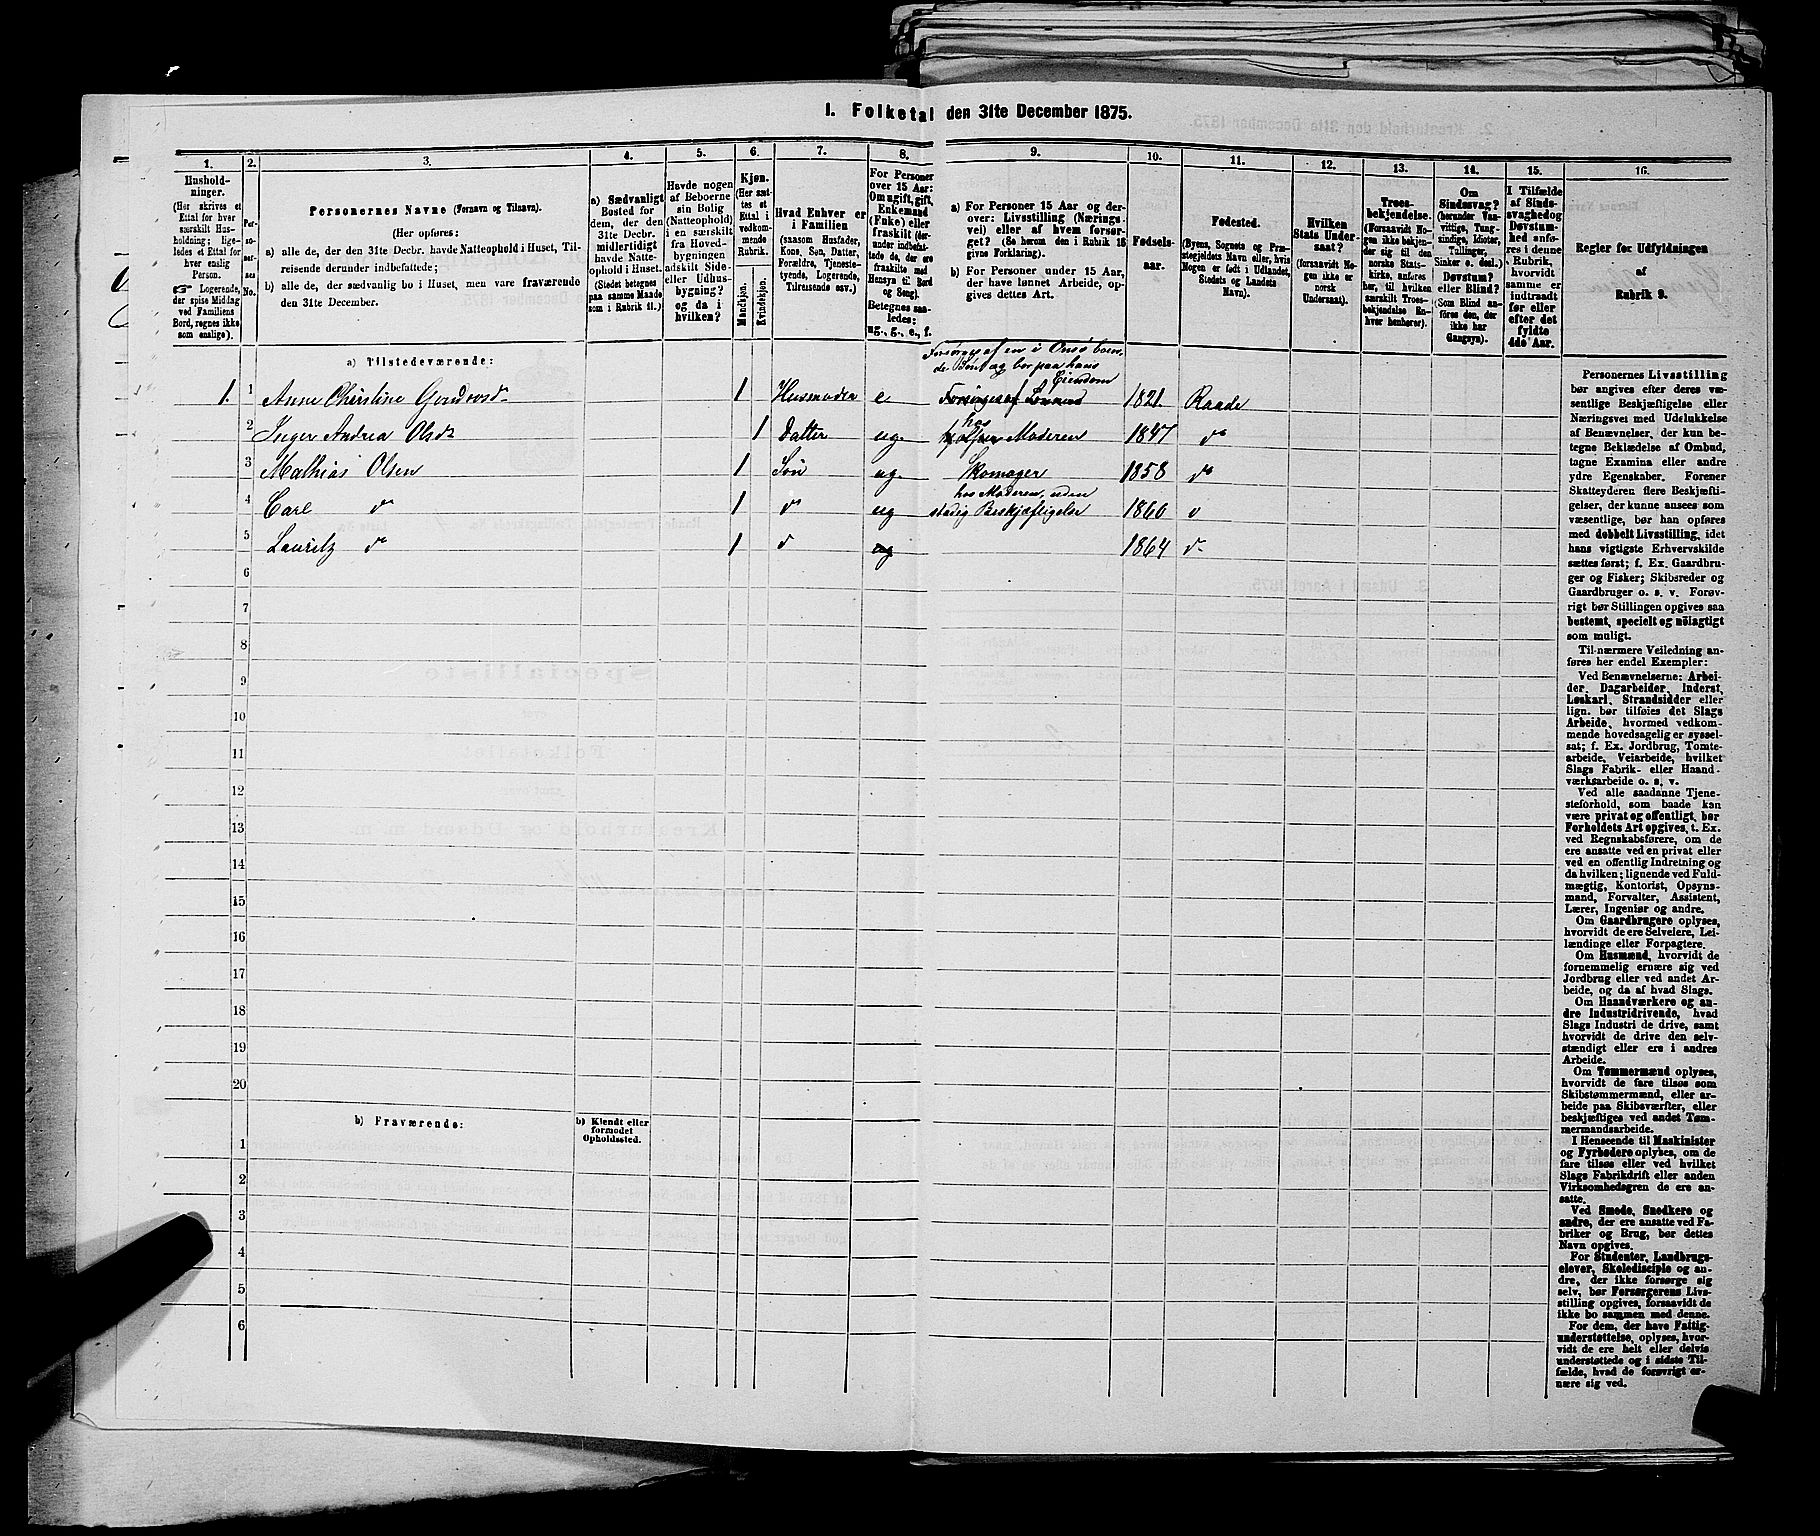 I. Folketal den 31te December 1875.
1. 2. 3. 4. 5. 6. 7. 8. 9. 10. 11. 12. 13. 14. 15. 16.
Hushold-
ninger.
(Her skrives et
Ettal for hver
særskilt Hus-
holdning; lige-
ledes et Ettal for
hver enslig
Person.
☞ Logerende,
der spise Middag
ved Familiens
Bord, regnes ikke
som enslige).
Per-
so-
ner-
nes
No.
Personernes Navne (Fornavn og Tilnavn).
(Her opføres:
a) alle de, der den 31te Decbr. havde Natteophold i Huset, Til-
reisende derunder indbefattede;
b) alle de, der sædvanlig bo i Huset, men vare fraværende
den 31te December.
a) Sædvanligt
Bosted for
dem, der den
31te Decbr.
midlertidigt
havde Natte-
ophold i Huset.
(Stedet betegnes
paa samme Maade
som i Rubrik 11.)
Havde nogen
af Beboerne
sin Bolig
(Natteophold)
i en særskilt
fra Hoved-
bygningen
adskilt Side-
eller Udhus-
bygning?
og da i
hvilken?
Kjøn.
(Her sæt-
tes et
Ettal i
vedkom-
mende
Rubrik.
Mandkjøn.
Kvindekjøn.
Hvad Enhver er
i Familien
(saasom Husfader,
Kone, Søn, Datter,
Forældre, Tjeneste-
tyende, Logerende,
Tilreisende osv.)
For Personer
over 15 Aar:
Om ugift, gift,
Enkemand
(Enke) eller
fraskilt (der-
under indbefat-
tede de, der ere
fraskilte med
Hensyn til Bord
og Seng).
Betegnes saa-
ledes:
ug., g., e., f.
a) For Personer 15 Aar og der-
over: Livsstilling (Nærings-
vei) eller af hvem forsør-
get? (Se herom den i Rubrik 16
givne Forklaring).
b) For Personer under 15 Aar,
der have lønnet Arbeide, op-
gives dettes Art.
Fødsels-
aar.
Fødested.
(Byens, Sognets og Præ-
stegjeldets Navn eller, hvis
Nogen er født i Udlandet,
Stedets og Landets
Navn).
Hvilken
Stats Under-
saat?
(forsaavidt No-
gen ikke er
norsk
Undersaat).
Troes-
bekjendelse.
(Forsaavidt No-
gen ikke bekjen-
der sig til den
norske Stats-
kirke, anføres
her, til hvilken
særskilt Troes-
bekjendelse En-
hver henhører).
Om
Sindssvag?
(herunder Van-
vittige, Tung-
sindige, Idioter,
Tullinger,
Sinker o. desl.)
Døvstum?
eller Blind?
(Som Blind an-
føres den, der
ikke har
Gangsyn).
I Tilfælde
af Sinds-
svaghed og
Døvstum-
hed anfø-
res i denne
Rubrik,
hvorvidt
samme er
indtraadt
før eller
efter det
fyldte
4de Aar.
Regler for Udfyldningen
af
Rubrik 9.
a) Tilstedeværende:
Forsørges af en i Onsø boen-
de Søn og bor paa hans
Eiendom
1. 1 Anne Christine Husmoder e Forsørges af Sønnen 1821 Raade
2 Inger Andrea Olsdr 1 Datter ug. hos Moderen 1847 do
3 Mathias Olsen 1 Søn ug. Skomager 1858 do
hos Moderen, uden
4 Carl do 1 do ug stadig Beskjæftigelse 1860 do
5 Lauritz do 1 do ug 1864 do
6
7
8
9
10
11
12
13
14
15
16
17
18
19
20
b) Fraværende:
b) Kjendt eller
formodet
Opholdssted.
1
2
3
4
5
6
Personernes Livsstilling
bør angives efter deres væ-
sentlige Beskjæftigelse eller
Næringsvei med Udelukkelse
af Benævnelser, der kun be-
tegne Beklædelse af Ombud,
tagne Examina eller andre
ydre Egenskaber. Forener
Skatteyderen flere Beskjæfti-
gelser, der kunne ansees som
væsentlige, bør han opføres
med dobbelt Livsstilling, idet
hans vigtigste Erhvervskilde
sættes først; f. Ex. Gaardbru-
ger og Fisker; Skibsreder og
Gaardbruger o. s. v. Forøv-
rigt bør Stillingen opgives saa
bestemt, specielt og nöiagtigt
som muligt.
Til nærmere Veiledning an-
føres her endel Exempler:
Ved Benævnelserne: Arbei-
der, Dagarbeider, Inderst,
Løskarl, Strandsidder eller
lign. bør tilføies det Slags
Arbeide, hvormed vedkom-
mende hovedsagelig er syssel-
sat; f. Ex. Jordbrug, Tomte-
arbeide, Veiarbeide, hvilket
Slags Fabrik- eller Haand-
værksarbeide o. s. v.
Ved alle saadanne Tjene-
steforhold, som baade kan
være privat og offentligt, bør
Forholdets Art opgives, t. Ex.
ved Regnskabsførere, om de
ere ansatte ved en privat eller
ved en offentlig Indretning og
da hvilken; lignende ved Fuld-
mægtig, Kontorist, Opsyns-
mand, Forvalter, Assistent,
Lærer, Ingeniør og andre.
Om Gaardbrugere oplyses,
hvorvidt de ere Selveiere, Lei-
lændinge eller Forpagtere.
Om Husmænd, hvorvidt de
fornemmelig ernære sig ved
Jordbrug eller ved andet Ar-
beide, og da af hvad Slags.
Om Haandværkere og an-
dre Industridrivende, hvad
Slags Industri de drive, samt
hvorvidt de drive den selv-
stændigt eller ere i andres
Arbeide.
Om Tømmermænd oplyses,
hvorvidt de fare tilsøs som
Skibstømmermænd, eller ar-
beide paa Skibsværfter, eller
beskjæftiges ved andet Tøm-
mermandsarbeide.
I Henseende til Maskinister
og Fyrbødere oplyses, om de
fare tilsøs eller ved hvilket
Slags Fabrikdrift eller anden
Virksomhedsgren de ere an-
satte.
Ved Smede, Snedkere og
andre, der ere ansatte ved Fa-
briker og Brug, bør dettes
Navn opgives.
For Studenter, Landbrugs-
elever, Skoledisciple og an-
dre, der ikke forsørge sig
selv, bør Forsørgerens Livs-
stilling opgives, forsaavidt de
ikke bo sammen med denne.
For dem, der have Fattig-
understøttelse, oplyses, hvor-
vidt de ere helt eller delvis
understøttede og i sidste Til-
fælde, hvad de forøvrigt er-
nære sig ved.